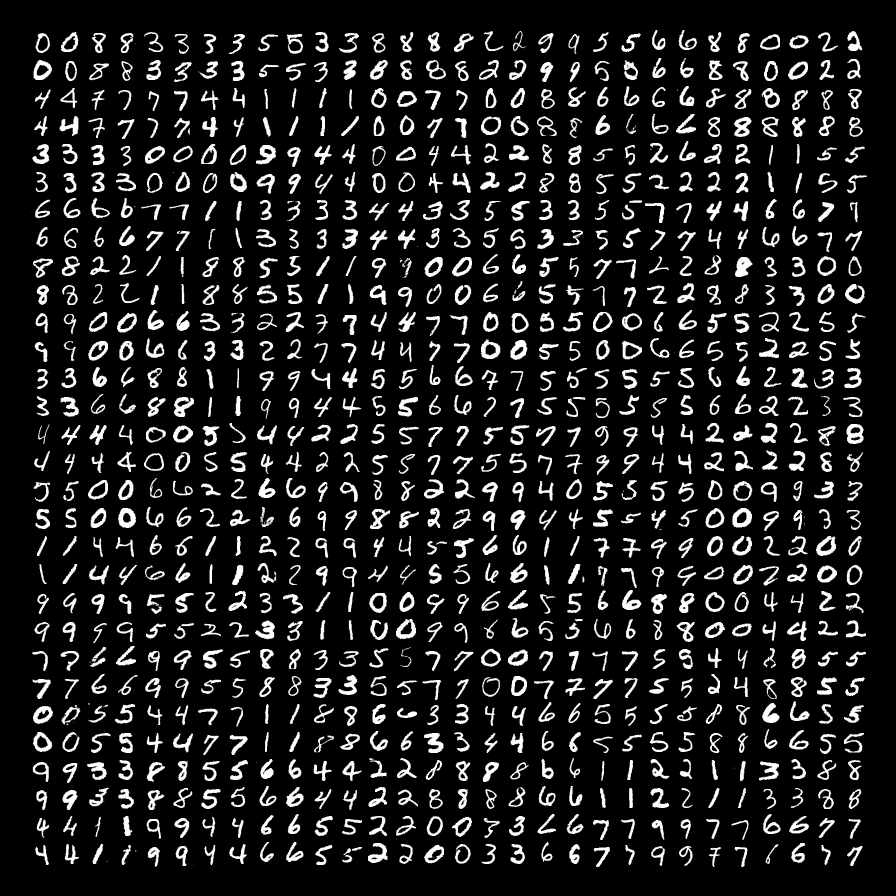 0 0 8 8 3 3 3 3 5 5 3 3 8 8 8 8 2 2 9 9 5 5 6 6 8 8 0 0 2 2
0 0 8 8 3 3 3 3 5 5 3 3 8 8 8 8 2 2 9 9 5 0 6 6 8 8 0 0 2 2
4 4 7 7 7 7 4 4 1 1 1 1 0 0 7 7 0 0 8 8 6 6 6 6 8 8 8 8 8 8
4 4 7 7 7 7 4 4 1 1 1 1 0 0 7 7 0 0 8 8 6 6 6 6 8 8 8 8 8 8
3 3 3 3 0 0 0 0 9 9 4 4 0 0 4 4 2 2 8 8 5 5 2 6 2 2 1 1 5 5
3 3 3 3 0 0 0 0 9 9 4 4 0 0 4 4 2 2 8 8 5 5 2 2 2 2 1 1 5 5
6 6 6 6 7 7 1 1 3 3 3 3 4 4 3 3 5 5 3 3 5 5 7 7 4 4 6 6 7 7
6 6 6 6 7 7 1 1 3 3 3 3 4 4 3 3 5 5 3 3 5 5 7 7 4 4 6 6 7 7
8 8 2 2 1 1 8 8 5 5 1 1 9 9 0 0 6 6 5 5 7 7 2 2 8 8 3 3 0 0
8 8 2 2 1 1 8 8 5 5 1 1 9 9 0 0 6 6 5 5 7 7 2 2 8 8 3 3 0 0
9 9 0 0 6 6 3 3 2 2 7 7 4 4 7 7 0 0 5 5 0 0 6 6 5 5 2 2 5 5
9 9 0 0 6 6 3 3 2 2 7 7 4 4 7 7 0 0 5 5 0 0 6 6 5 5 2 2 5 5
3 3 6 6 8 8 1 1 9 9 4 4 5 5 6 6 7 7 5 5 5 5 5 5 6 6 2 2 3 3
3 3 6 6 8 8 1 1 9 9 4 4 5 5 6 6 7 7 5 5 5 5 5 5 6 6 2 2 3 3
4 4 4 4 0 0 5 5 4 4 2 2 5 5 7 7 5 5 7 7 9 9 4 4 2 2 2 2 8 8
4 4 4 4 0 0 5 5 4 4 2 2 5 5 7 7 5 5 7 7 9 9 4 4 2 2 2 2 8 8
5 5 0 0 6 6 2 2 6 6 9 9 8 8 2 2 9 9 4 0 5 5 5 5 0 0 9 9 3 3
5 5 0 0 6 6 2 2 6 6 9 9 8 8 2 2 9 9 4 4 5 5 4 5 0 0 9 9 3 3
1 1 4 4 6 6 1 1 2 2 9 9 4 4 5 5 6 6 1 1 7 7 9 9 0 0 2 2 0 0
1 1 4 4 6 6 1 1 2 2 9 9 4 4 5 5 6 6 1 1 7 7 9 9 0 0 2 2 0 0
9 9 9 9 5 5 2 2 3 3 1 1 0 0 9 9 6 6 5 5 6 6 8 8 0 0 4 4 2 2
9 9 9 9 5 5 2 2 3 3 1 1 0 0 9 9 6 6 5 5 6 6 8 8 0 0 4 4 2 2
7 7 6 6 9 9 5 5 8 8 3 3 5 5 7 7 0 0 7 7 7 7 5 5 4 4 8 8 5 5
7 7 6 6 9 9 5 5 8 8 3 3 5 5 7 7 0 0 7 7 7 7 5 5 2 4 8 8 5 5
0 0 5 5 4 4 7 7 1 1 8 8 6 6 3 3 4 4 6 6 5 5 5 5 8 8 6 6 5 5
0 0 5 5 4 4 7 7 1 1 8 8 6 6 3 3 4 4 6 6 5 5 5 5 8 8 6 6 5 5
9 9 3 3 8 8 5 5 6 6 4 4 2 2 8 8 8 8 6 6 1 1 2 2 1 1 3 3 8 8
9 9 3 3 8 8 5 5 6 6 4 4 2 2 8 8 8 8 6 6 1 1 2 2 1 1 3 3 8 8
4 4 1 1 9 9 4 4 6 6 5 5 2 2 0 0 3 3 6 6 7 7 9 9 7 7 6 6 7 7
4 4 1 1 9 9 4 4 6 6 5 5 2 2 0 0 3 3 6 6 7 7 9 9 7 7 6 6 7 7